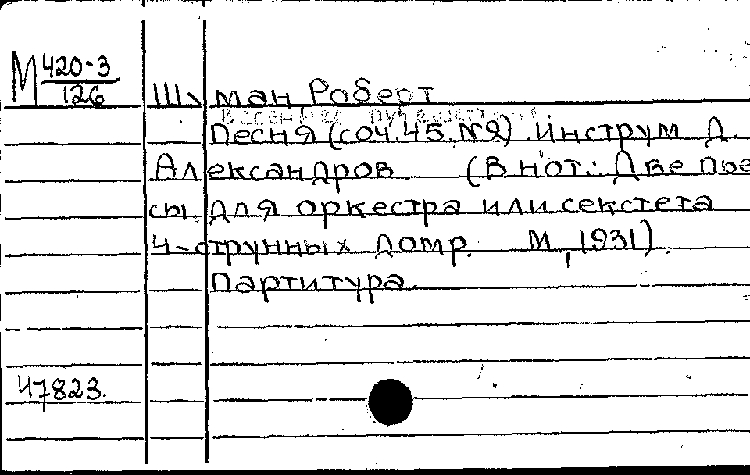 М 420-3
126
Шуман Роберт
Песня (соч. 45, №2). Инструм. Д.
Александров (В нот.: Две пье
сы для оркестра или секстета
4-струнных домр. М, 1931).
Партитура.
47823.